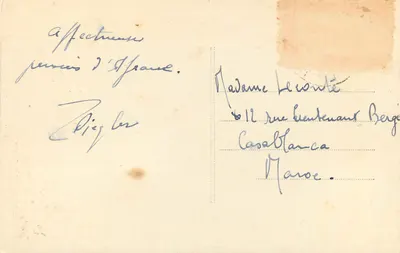 Affectueuse
pensées d'Afrance.
Ziegler
Madame Leconté
12 rue Lieutenant Bergé
Casablanca
Maroc.